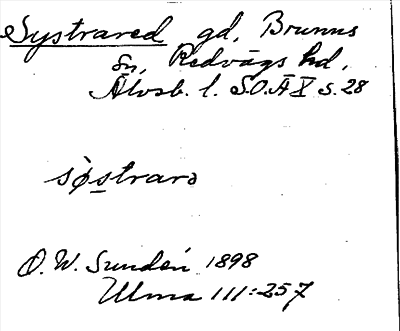 Systrared gd, Brunns
sn, Redvägs hd,
Älvsb. l. S.O.Ä X s. 28
sø̀strarə
O. W. Sundén 1898
Ulma 111:257